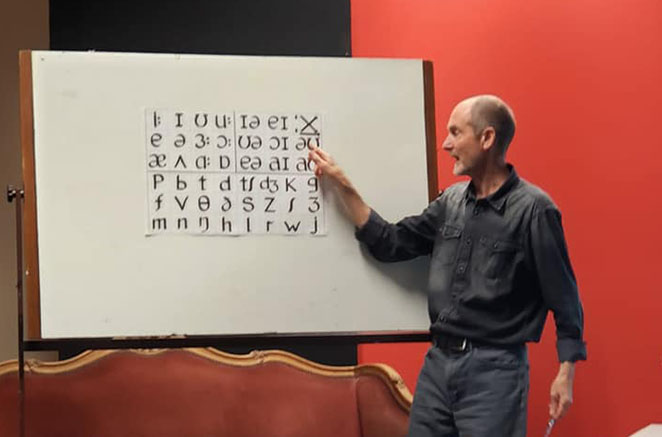 i: ɪ ʊ u: ɪə eɪ X
e ə ɜ: ɔ: ʊə ɔɪ əʊ
æ ʌ ɑ: ɒ eə aɪ aʊ
p b t d tʃ dʒ k g
f v θ ð s z ʃ ʒ
m n ŋ h l r w j